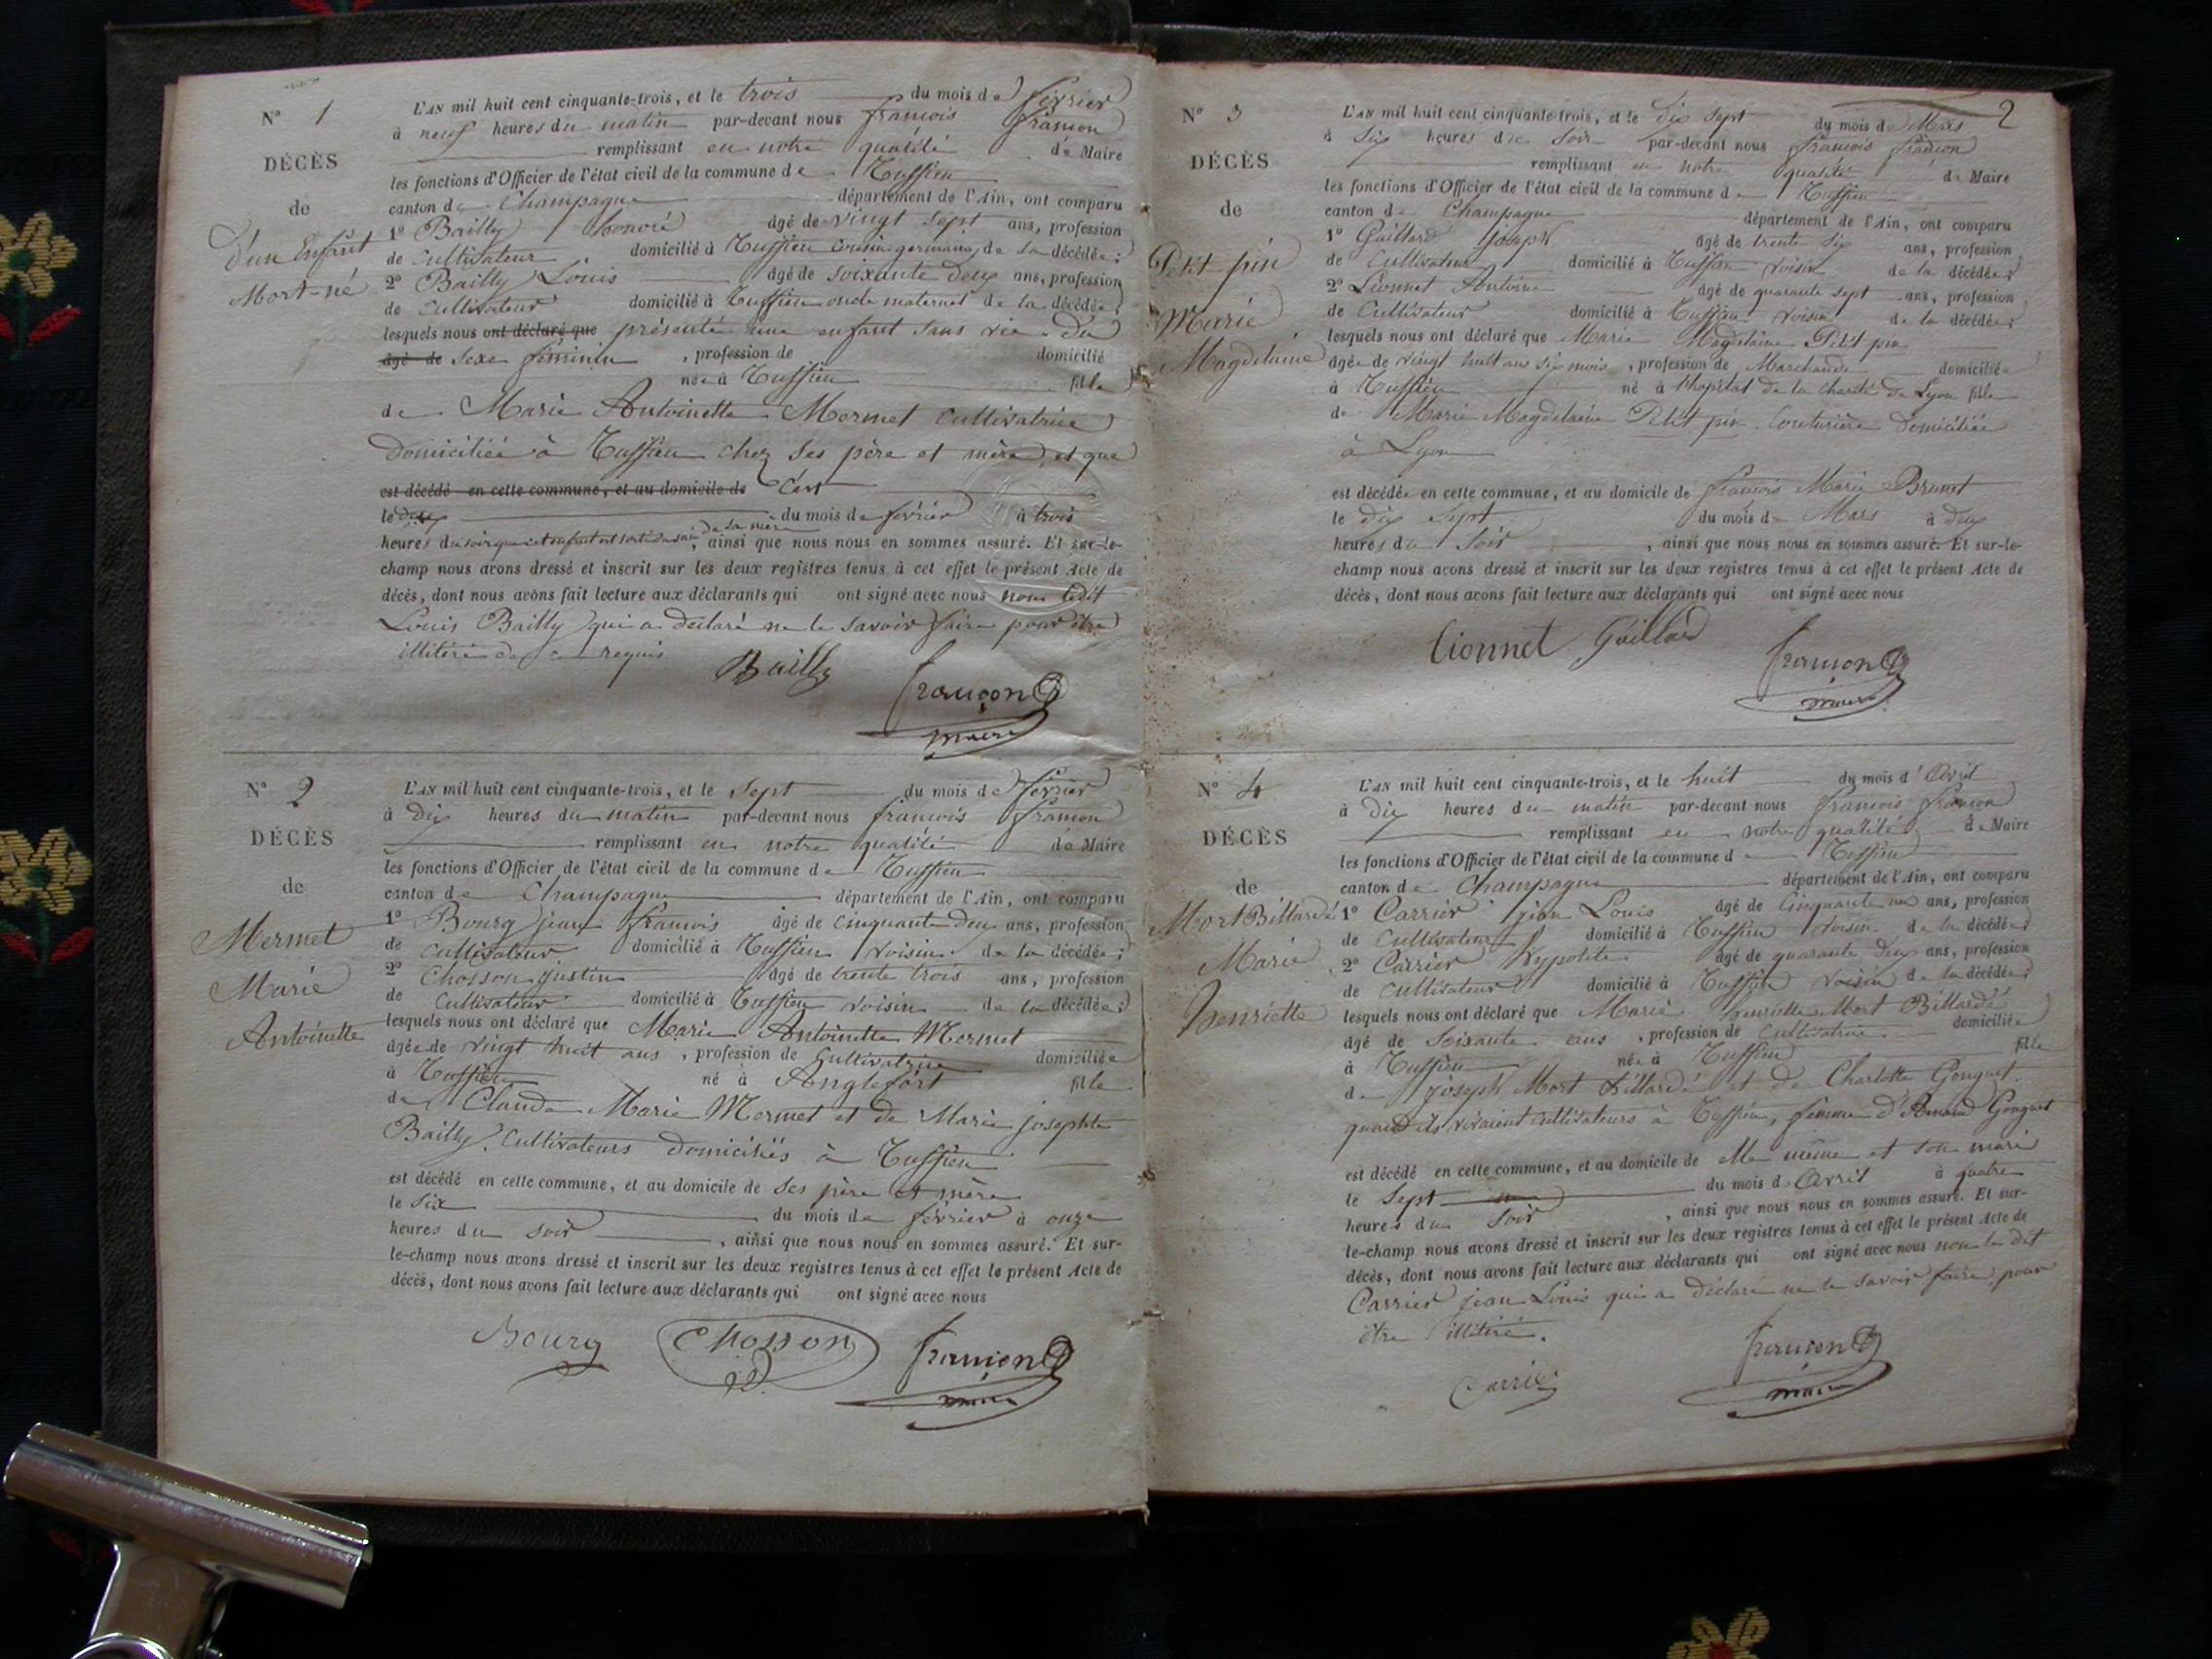 N° 1
DÉCÈS
de
D'un Enfant
Mort-né
L'AN mil huit cent cinquante-trois, et le trois du mois de février
à neuf heures du matin par-devant nous françois françon
remplissant en notre qualité de Maire
les fonctions d'Officier de l'état civil de la commune de Ruffieu
canton de Champagne département de l'Ain, ont comparu
1° Bailly honoré âgé de vingt sept ans, profession
de Cultivateur domicilié à Ruffieu cousin germain de la décédée;
2° Bailly Louis âgé de soixante deux ans, profession
de Cultivateur domicilié à Ruffieu oncle maternel de la décédée;
lesquels nous ont déclaré que présenté une enfant sans vie du
âgé de Sexe féminin, profession de domicilié
née à Ruffieu fille
de Marie Antoinette Mermet Cultivatrice
Domiciliée à Ruffieu chez ses père et mère, et que
est décédé en cette commune, et au domicile de C'est
le deux du mois de février à trois
heures du soir que cet enfant est sorti du sein de sa mère, ainsi que nous nous en sommes assuré. Et sur-le-
champ nous avons dressé et inscrit sur les deux registres tenus à cet effet le présent Acte de
décès, dont nous avons fait lecture aux déclarants qui ont signé avec nous non ledit
Louis Bailly qui a déclaré ne le savoir faire pour être
illitéré de ce requis
Bailly
françon
maire
N° 2
DÉCÈS
de
Mermet
Marie
Antoinette
L'AN mil huit cent cinquante-trois, et le sept du mois de février
à dix heures du matin par-devant nous françois françon
remplissant en notre qualité de Maire
les fonctions d'Officier de l'état civil de la commune de Ruffieu
canton de Champagne département de l'Ain, ont comparu
1° Bourg jean françois âgé de cinquante deux ans, profession
de Cultivateur domicilié à Ruffieu voisin de la décédée;
2° Chosson justin âgé de trente trois ans, profession
de Cultivateur domicilié à Ruffieu voisin de la décédée;
lesquels nous ont déclaré que Marie Antoinette Mermet
âgée de vingt huit ans, profession de Cultivatrice domiciliée
à Ruffieu né à Anglefort fille
de Claude Marie Mermet et de Marie josephte
Bailly, Cultivateurs domiciliés à Ruffieu
est décédé en cette commune, et au domicile de ses père et mère
le six du mois de février à onze
heures du soir, ainsi que nous nous en sommes assuré. Et sur-
le-champ nous avons dressé et inscrit sur les deux registres tenus à cet effet le présent Acte de
décès, dont nous avons fait lecture aux déclarants qui ont signé avec nous
Bourg Chosson françon
maire
2
N° 3
DÉCÈS
de
Petit pin
Marie
Magdelaine
L'AN mil huit cent cinquante-trois, et le dix sept du mois de Mars
à six heures du soir par-devant nous françois françon
remplissant en notre qualité de Maire
les fonctions d'Officier de l'état civil de la commune de Ruffieu
canton de Champagne département de l'Ain, ont comparu
1° Gaillard joseph âgé de trente six ans, profession
de Cultivateur domicilié à Ruffieu voisin de la décédée;
2° Lionnet Antoine âgé de quarante sept ans, profession
de Cultivateur domicilié à Ruffieu voisin de la décédée;
lesquels nous ont déclaré que Marie Magdelaine Petit pin
âgée de vingt huit ans six mois, profession de Marchande domiciliée
à Ruffieu né à l'hopital de la charité de Lyon fille
de Marie Magdelaine Petit pin Couturière domiciliée
à Lyon
est décédée en cette commune, et au domicile de françois Marie Brunet
le dix sept du mois de Mars à deux
heures du soir, ainsi que nous nous en sommes assuré. Et sur-le-
champ nous avons dressé et inscrit sur les deux registres tenus à cet effet le présent Acte de
décès, dont nous avons fait lecture aux déclarants qui ont signé avec nous
Lionnet Gaillard
françon
maire
N° 4
DÉCÈS
de
Mort Billardé
Marie
henriette
L'AN mil huit cent cinquante-trois, et le huit du mois d'Avril
à dix heures du matin par-devant nous françois françon
remplissant en notre qualité de Maire
les fonctions d'Officier de l'état civil de la commune de Ruffieu
canton de Champagne département de l'Ain, ont comparu
1° Carrier jean Louis âgé de cinquante un ans, profession
de Cultivateur domicilié à Ruffieu voisin de la décédée;
2° Carrier hypolite âgé de quarante deux ans, profession
de Cultivateur domicilié à Ruffieu voisin de la décédée;
lesquels nous ont déclaré que Marie henriette Mort Billardé
âgé de soixante ans, profession de Cultivatrice domiciliée
à Ruffieu née à Ruffieu fille
de joseph Mort Billardé et de Charlotte Gonguet
quand ils vivaient cultivateurs à Ruffieu, femme d' Gonguet
est décédé en cette commune, et au domicile de elle même et son mari
le sept du mois d'Avril à quatre
heures du soir, ainsi que nous nous en sommes assuré. Et sur-
le-champ nous avons dressé et inscrit sur les deux registres tenus à cet effet le présent Acte de
décès, dont nous avons fait lecture aux déclarants qui ont signé avec nous non le dit
Carrier jean Louis qui a déclaré ne le savoir faire pour
être illitéré.
Carrier
françon
maire